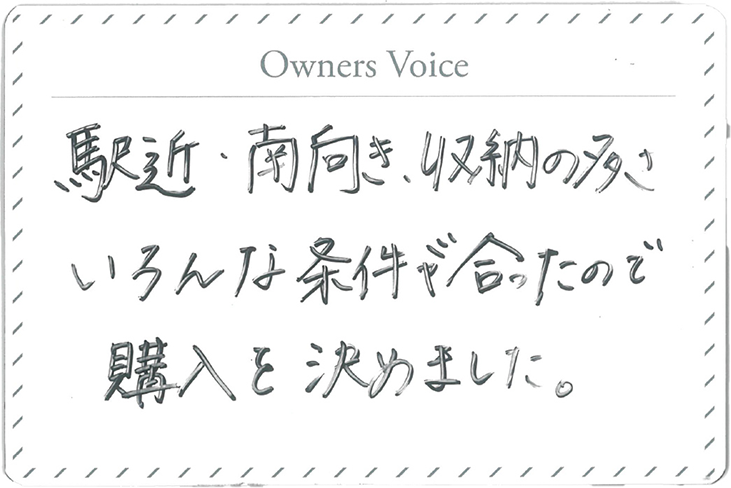 Owners Voice
駅近・南向き、収納の多さ
いろんな条件が合ったので
購入を決めました。